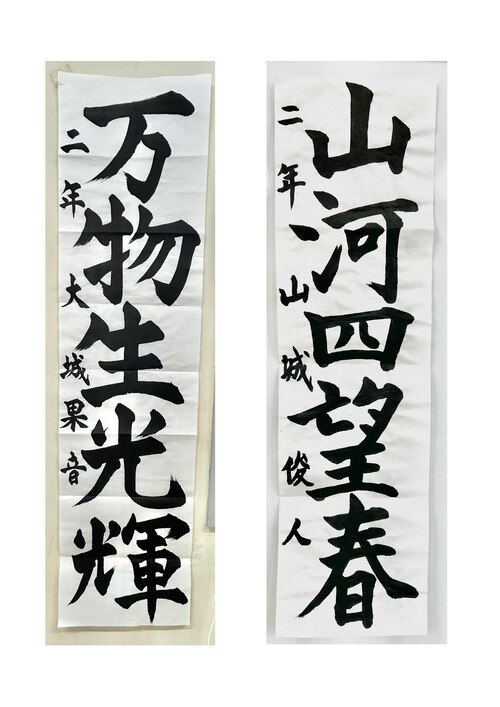 山河四望春
二年山城俊人
万物生光輝
二年大城果音